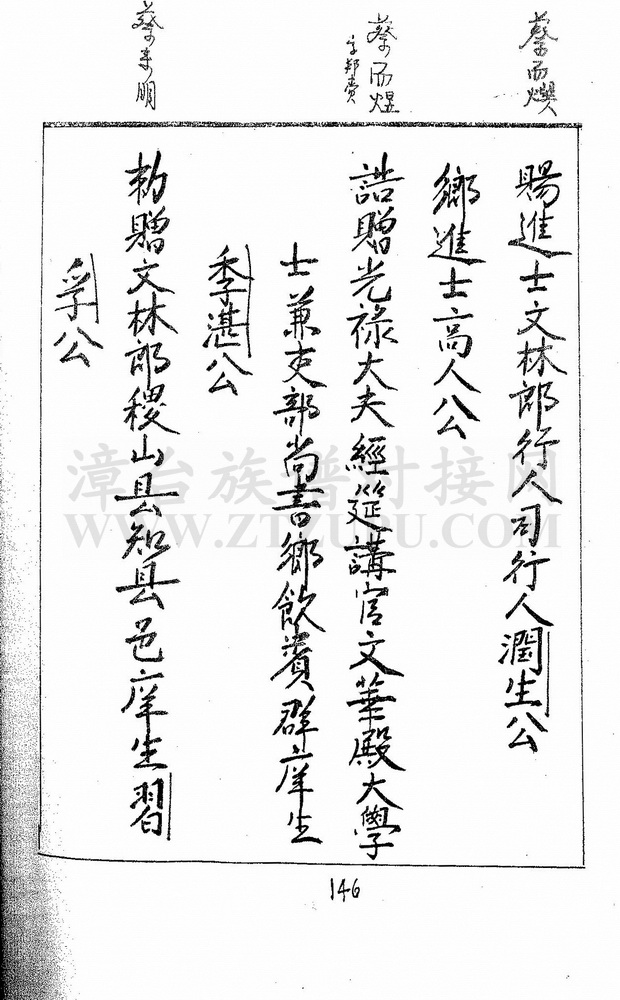 蔡而煚
蔡而煜
字邦賁
蔡未明
賜進士文林郎行人司行人潤生公
鄉進士高人公
誥贈光祿大夫經筵講官文華殿大學
士兼吏部尚書鄉飲賓群庠生
季湛公
勅贈文林郎稷山县知县邑庠生習
孚公
漳台族谱对接网
WWW.ZTZUPU.COM
146